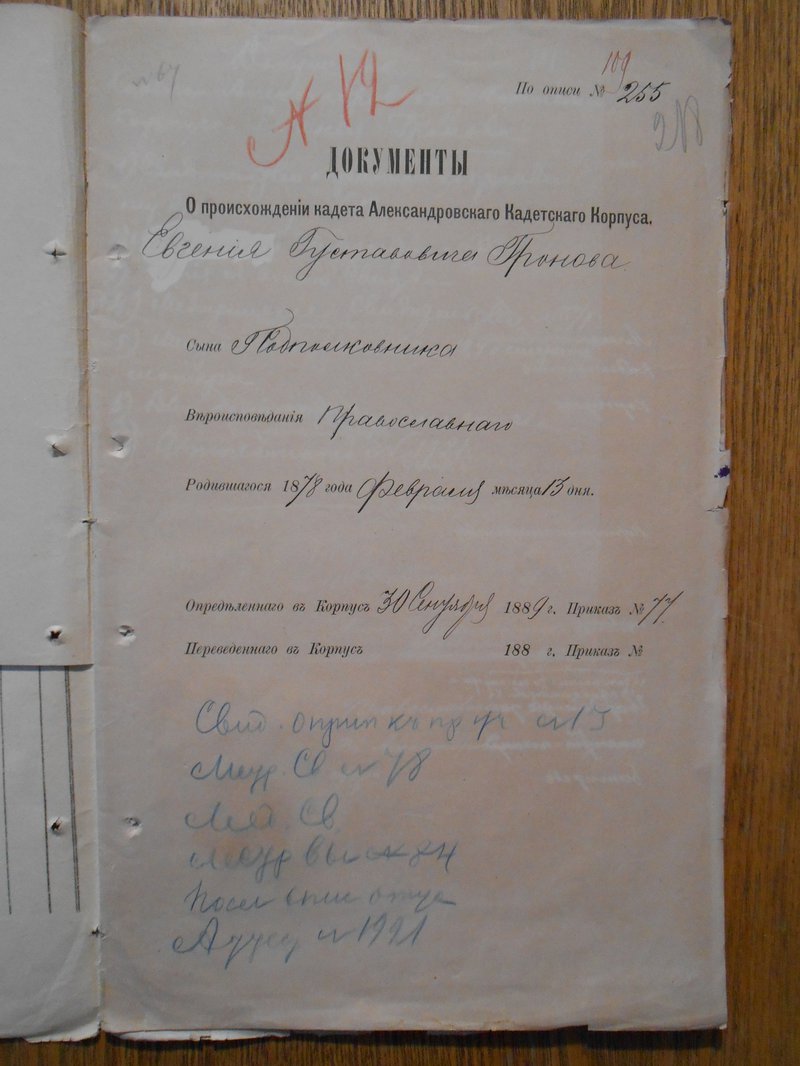 № 67
109
По описи № 255
№ 12
ДОКУМЕНТЫ
О происхожденіи кадета Александровскаго Кадетскаго Корпуса.
Евгенія Густавовича Гронова
Сына Подполковника
Вѣроисповѣданія Православнаго
Родившагося 1878 года Февраля мѣсяца 13 дня.
Опредѣленнаго въ Корпусъ 30 Сентября 1889 г. Приказъ № 77
Переведеннаго въ Корпусъ 188 г. Приказъ №
Свид. о прип къ пр уч № 15
Метр. Св № 78
Мед. Св
Посл спис отца
№ 1921